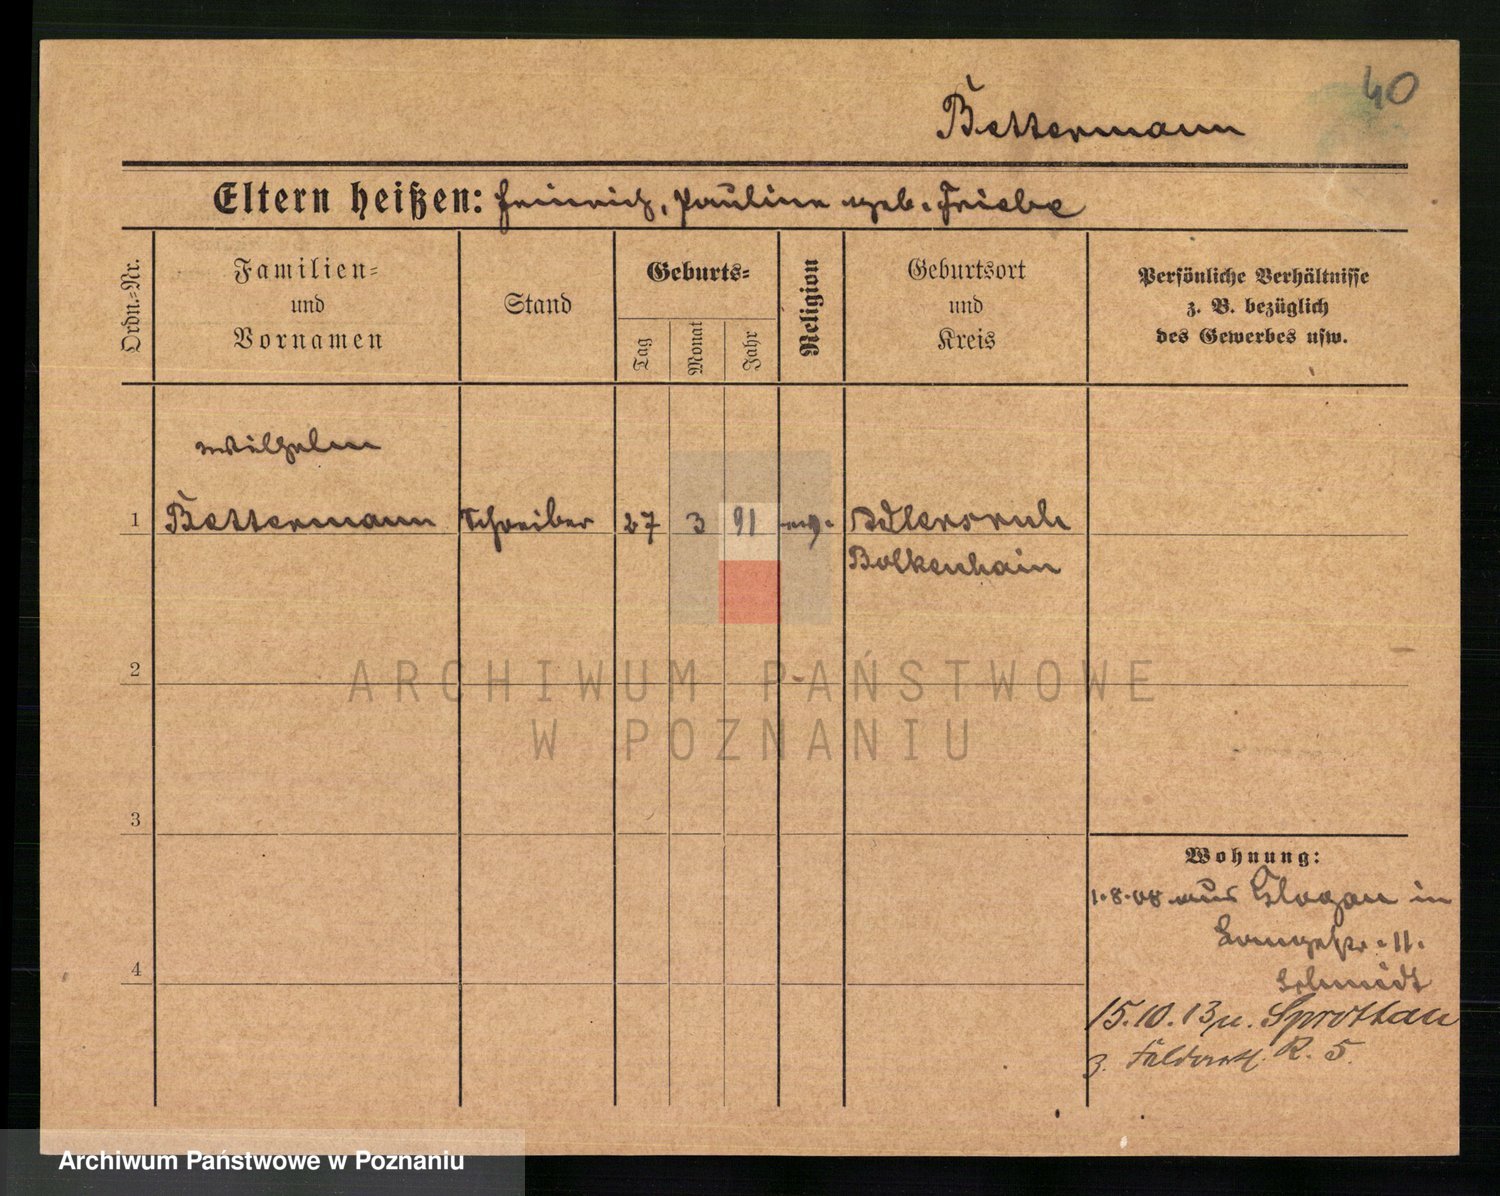 40
Bettermann
Eltern heißen: Heinrich, Pauline geb. Friebe
Ordn.=Nr.
Familien=
und
Vornamen
Stand
Geburts=
Tag
Monat
Jahr
Religion
Geburtsort
und
Kreis
Persönliche Verhältnisse
z. B. bezüglich
des Gewerbes usw.
Wilhelm
1 Bettermann Schreiber 27 3 91 ev. Adlersruh
Bolkenhain
2
3
4
Wohnung:
1.8.08 aus Glogau in
Langestr. 11.
Schmidt
15.10.13 n. Sprottau
z. Feldartl. R. 5.
ARCHIWUM PAŃSTWOWE
W POZNANIU
Archiwum Państwowe w Poznaniu